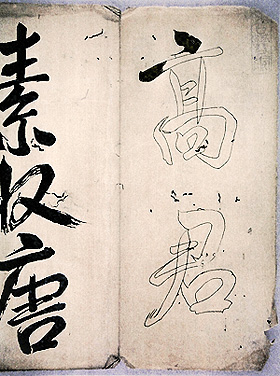 高君
素唐